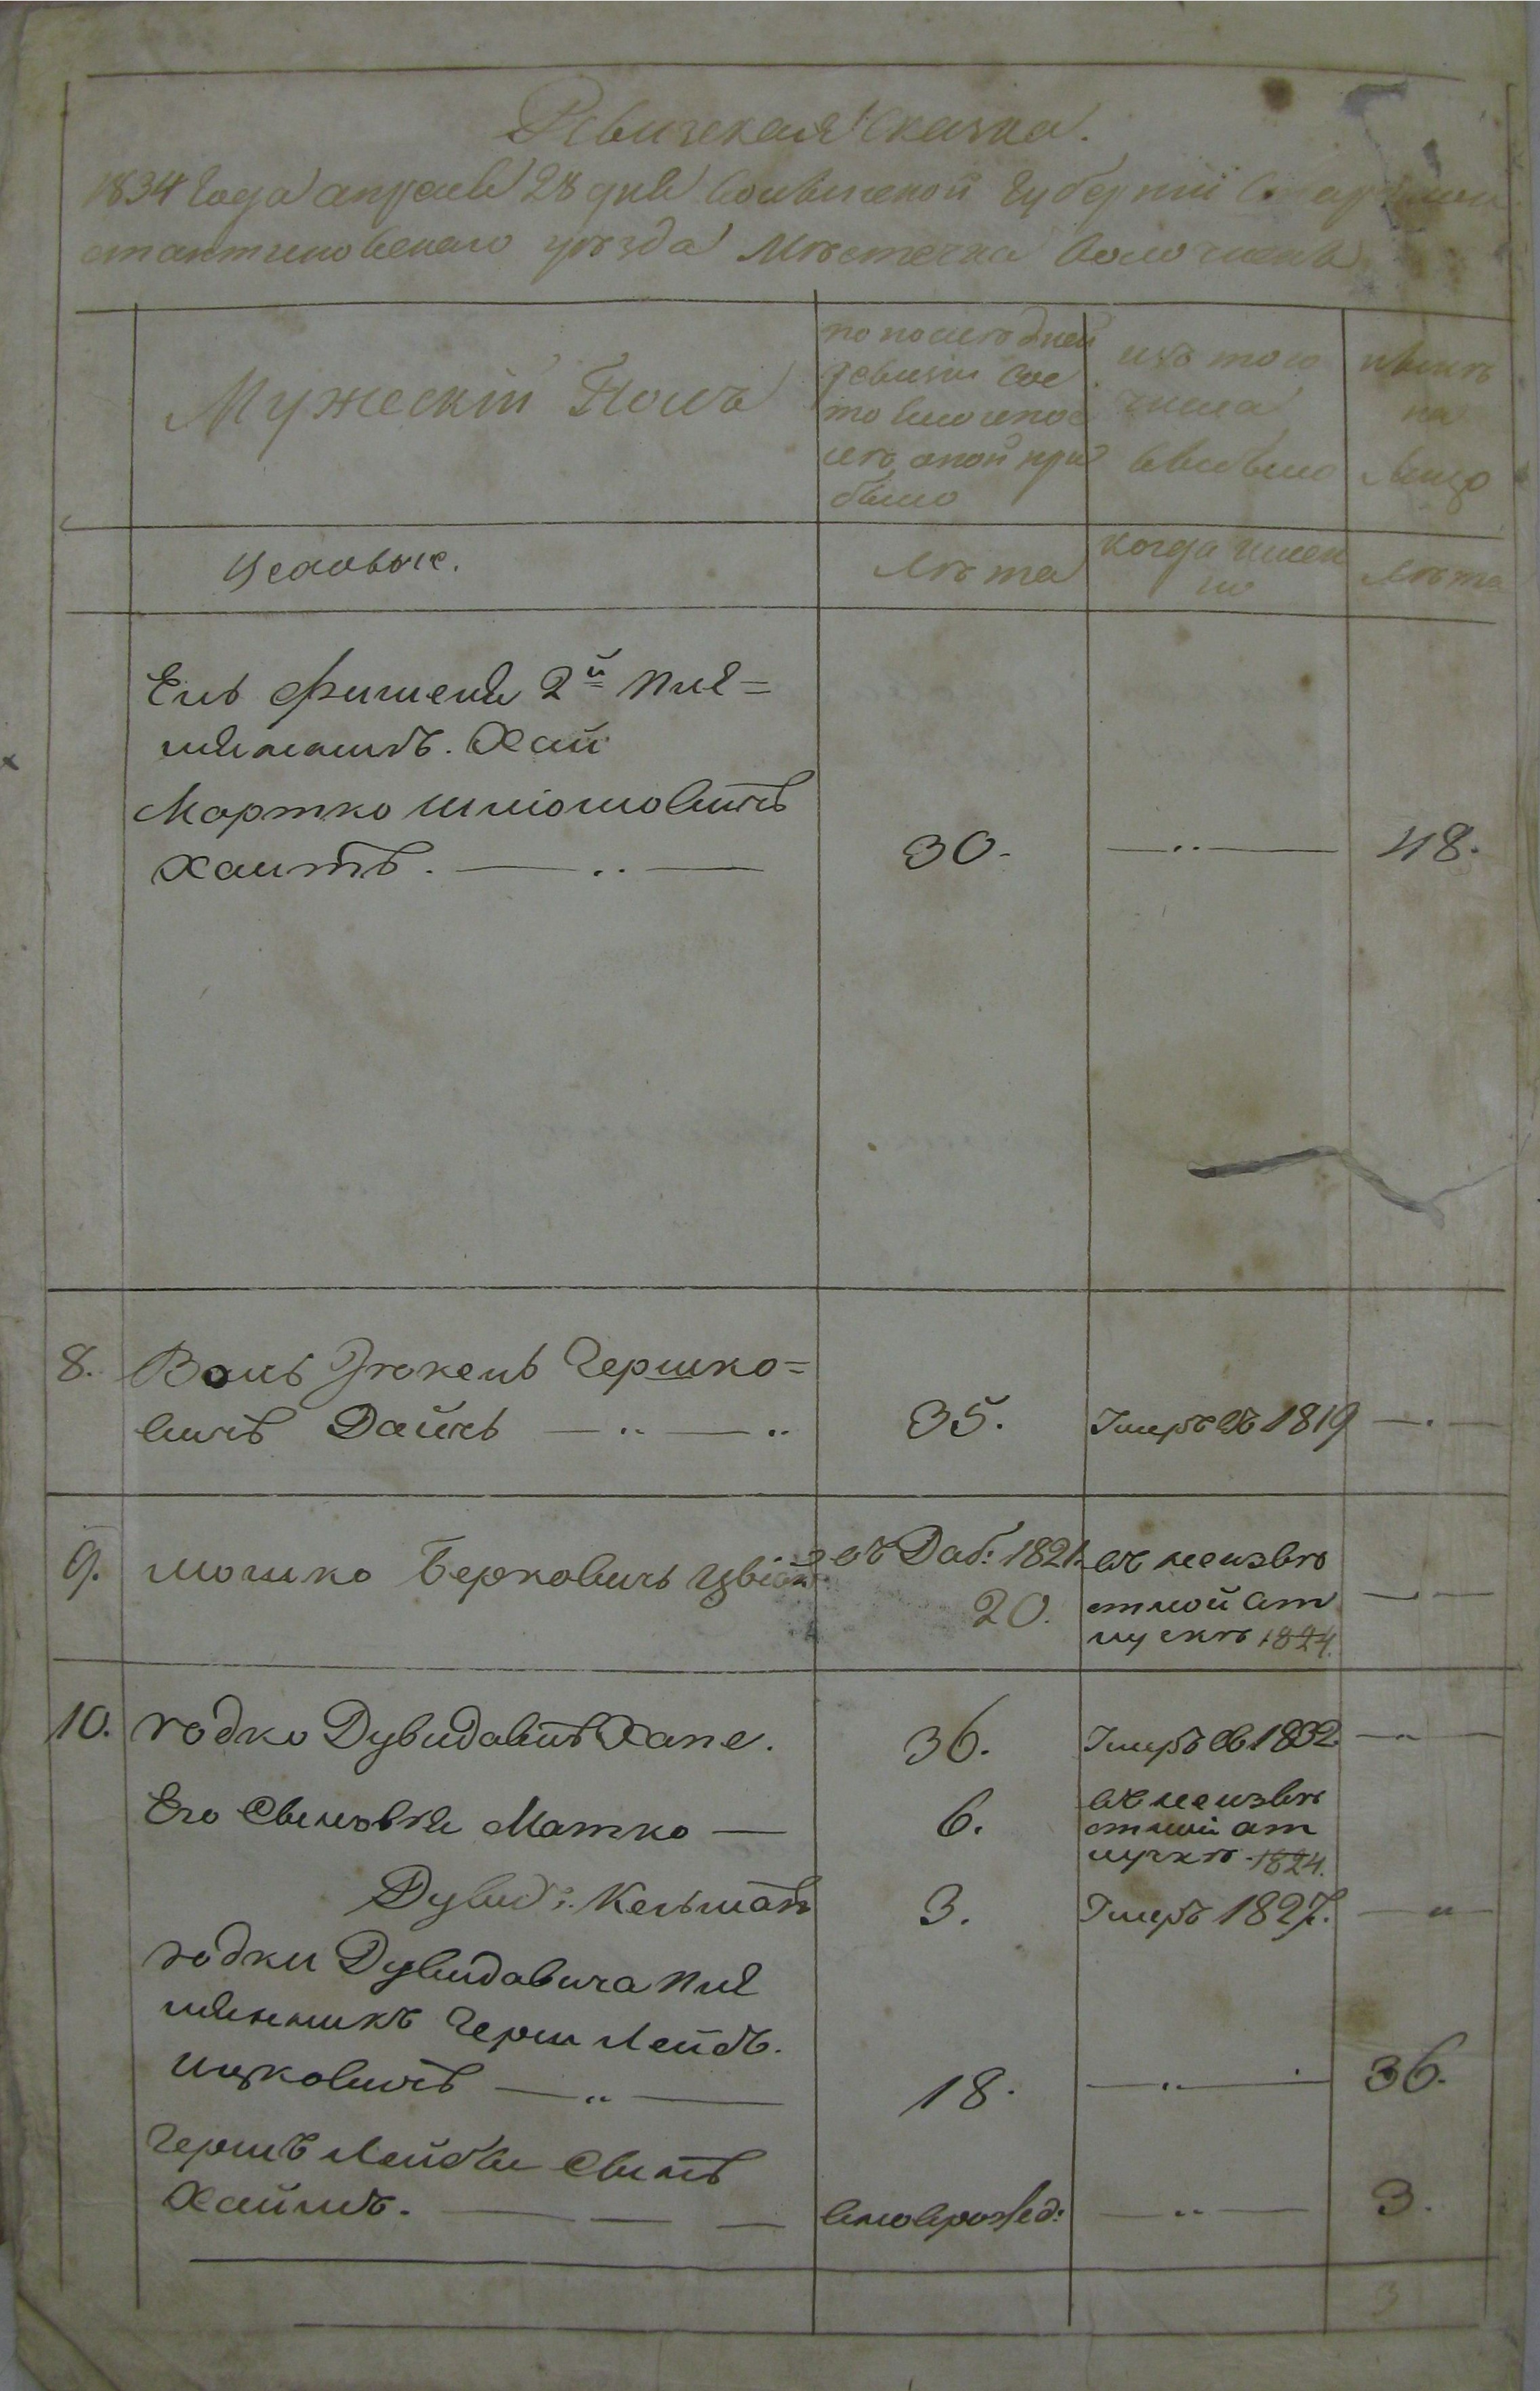 Ревижская Сказка.
1834 Года апреля 28 дня Волынской Губерніи Старокон
стантиновскаго уѣзда Мѣстечка Волочиска
Мужескій Полъ
по послѣдней
ревизіи сос
тояло и пос
лѣ оной при
было
изъ того
числа
выбыло
нынѣ
на
лицо
Цеховые.
Лѣта
когда имен
но
Лѣта
Ель Фишеля 2й пле=
мянникъ. Хаи
Мортко Шліомовичъ
Хаитъ.
30.
48.
8. Воль Іюкель Гершко=
вичъ Дайчъ
35.
Умеръ въ 1819
9. Мошко Берковичъ
въ Доб: 1821.
20.
въ неизвѣ
стной от
лучкѣ 1824.
10. Юдко Дувидовичъ Хапе.
36.
Умеръ въ 1832
Его Сыновья Матко
6.
въ неизвѣ
стной от
лучкѣ 1824.
Дувид: Кельманъ
3.
Умеръ 1827.
Юдки Дувидовича пле
мянникъ Герш Лейбъ.
Ицковичъ
18.
36.
Гершъ Лейбы Сынъ
Хаимъ.
3.
3